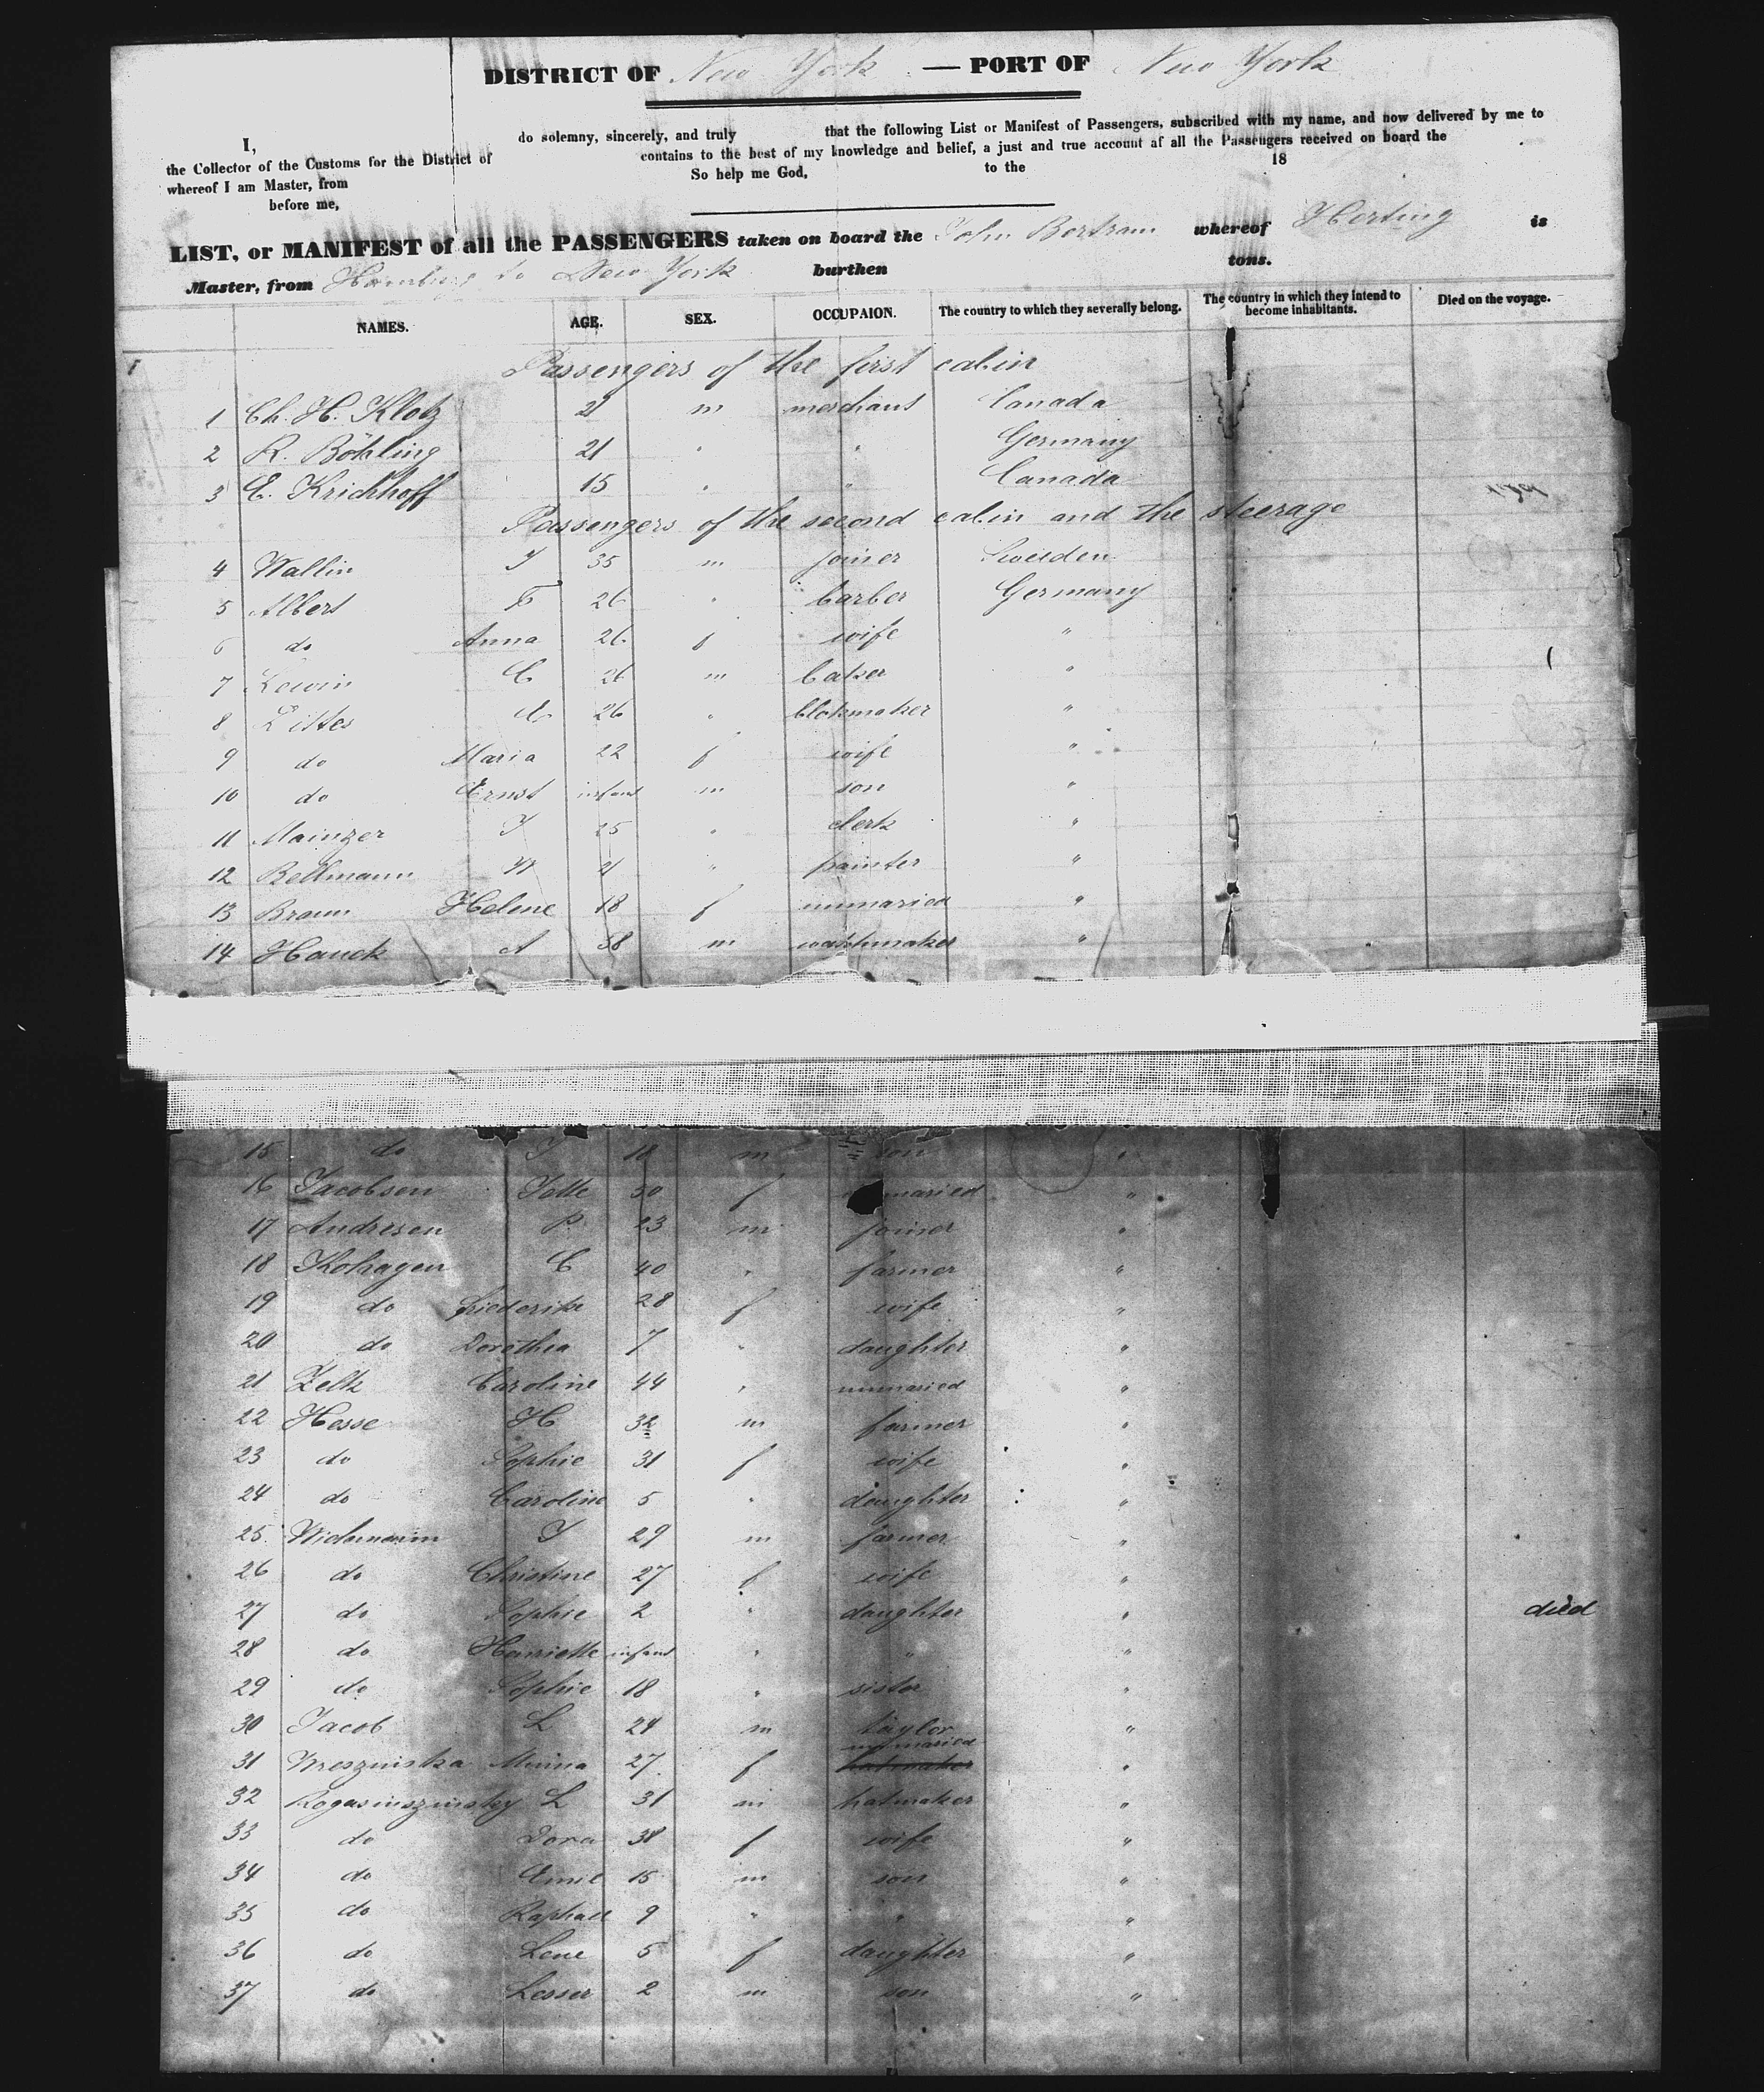 DISTRICT OF New York — PORT OF New York
I, do solemny, sincerely, and truly that the following List or Manifest of Passengers, subscribed with my name, and now delivered by me to
the Collector of the Customs for the District of contains to the best of my knowledge and belief, a just and true account af all the Passengers received on board the
whereof I am Master, from So help me God, to the 18
before me,
LIST, or MANIFEST of all the PASSENGERS taken on board the John Bertram whereof Herting is
Master, from Hamburg to New York burthen tons.
NAMES. AGE. SEX. OCCUPAION. The country to which they severally belong. The country in which they intend to become inhabitants. Died on the voyage.
Passengers of the first cabin
1 Ch. H. Klotz 21 m merchant Canada
2 R. Böhling 21 " " Germany
3 E. Krichhoff 15 " " Canada
Passengers of the second cabin and the steerage
4 Wallin J 35 m joiner Sweeden
5 Albert F 26 " barber Germany
6 do Anna 26 f wife "
7 Lewin C 26 m baker "
8 26 " blokmaker "
9 do Maria 22 f wife "
10 do Ernst infant m son "
11 Mainzer J 25 " clerk "
12 Bellmann W 21 " painter "
13 Braun Helene 18 f unmaried "
14 Hauck A 58 m watchmaker "
15 do J 18 m son "
16 Jacobsen Jette 30 f unmaried "
17 Andresen P. 23 m joiner "
18 Kohagen C 40 " farmer "
19 do Friederike 28 f wife "
20 do Dorothea 7 " daughter "
21 Zeltz Caroline 44 " unmaried "
22 Hesse H 32 m farmer "
23 do Sophie 31 f wife "
24 do Caroline 5 " daughter "
25 Wichmann J 29 m farmer "
26 do Christine 27 f wife "
27 do Sophie 2 " daughter " died
28 do Henriette infant " " "
29 do Sophie 18 " sister "
30 Jacob L 24 m taylor "
unmaried
31 Wreszinska Minna 27 f hatmaker "
32 Rogasinszinsky L 31 m hatmaker "
33 do Dora 38 f wife "
34 do Emil 15 m son "
35 do Raphael 9 " " "
36 do Lene 5 f daughter "
37 do Lesser 2 m son "